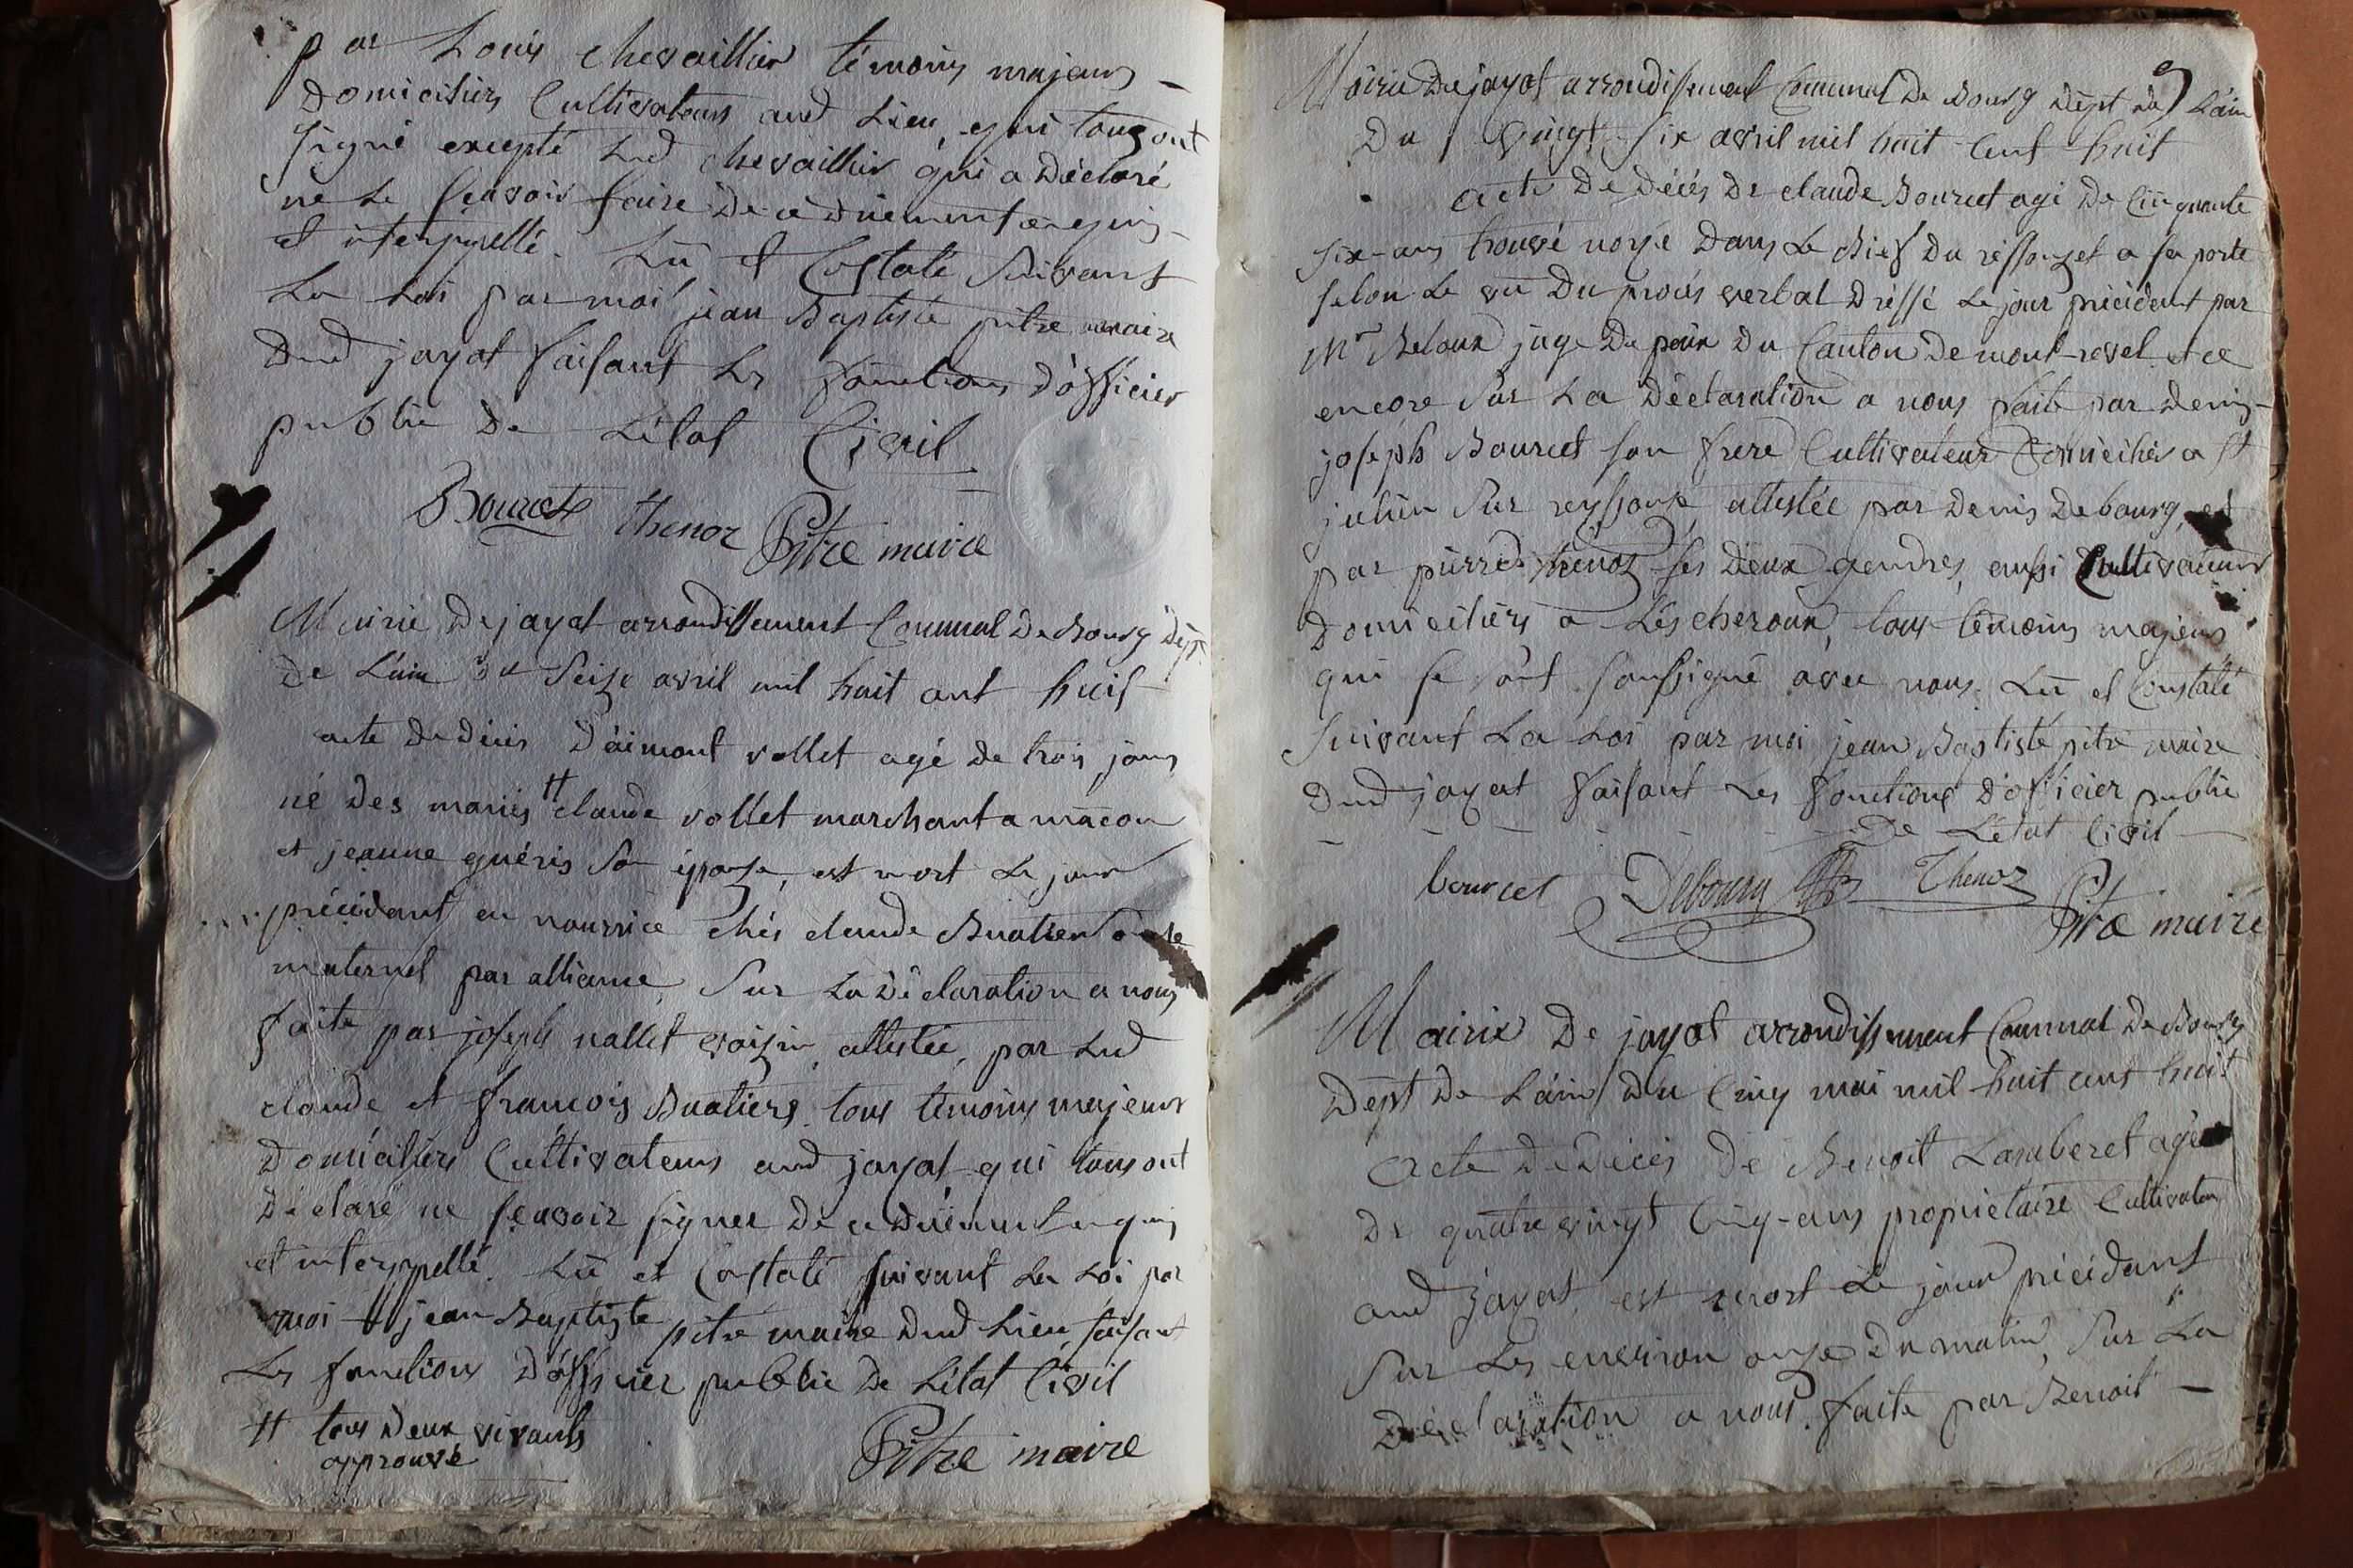 par Louis chevaillier témoins majeurs –
Domiciliés Cultivateurs aud Lieu, qui tous ont
signé excepté Led chevaillier qui a Déclaré
ne Le sçavoir faire de ce duement enquis –
et interppellé. Lü et Costaté suivant
La Loi par moi jean Baptiste pitre maire
Dud jayat faisant Les fonctions d'officier
public De L'état Civil
Bourcet thenoz Pitre maire
Mairie De jayat arrondissement Communal De Bourg Dépt
de L'ain du Seize avril mil huit cent huit
acte De Décés D'aimont vollet agé de trois jours
né des mariés # claude vollet marchant a mâcon
et jeanne guéris son épouse, est mort Le jour
précédant en nourrice chés claude Buatier oncle
maternel par alliance, sur La Déclaration a nous
faite par joseph vallet voisin, attestée, par Led
claude et francois Buatiers tous témoins majeurs
Domiciliés Cultivateurs aud jayat qui tous ont
Déclaré ne sçavoir signer De ce duement enquis
et interppellé. Lü et Costaté suivant La Loi par
moi jean Baptiste pitre maire Dud Lieu, faisant
Les fonctions D'officier public De L'état Civil
# tous Deux vivants
approuvé
Pitre maire
9
Mairie De jayat arrondissement Communal De Bourg Dépt De L'ain
Du vingt six avril mil huit cent huit
acte De Décés De claude Bourcet agé De Cinquante
six-ans trouvé noyé Dans Le Bief Du ressouzet a sa porte
selon Le vü Du procés verbal Dressé Le jour précédent par
Mr Reloux juge De paix Du Canton De mont-revel et ce
encore sur La Déclaration a nous faite par Denis –
joseph Bourcet son frere Cultivateur Domicilié a st
julien sur reyssouze, attestée par Denis Debourg, et
par pierre thenoz ses Deux gendres, aussi Cultivateurs
Domiciliés a Lescheroux, tous témoins majeurs
qui se sont soussigné avec nous. Lü et Constaté
suivant La Loi par moi jean Baptiste pitre maire
Dud jayat faisant Les fonctions D'officier public
De L'état Civil
bourcet Debourg Thenoz
Pitre maire
Mairie De jayat arrondissement Communal De Bourg
Dépt De L'ain Du Cinq mai mil huit cent huit
acte De Décés De Benoit Lamberet agé
De quatre vingt Cinq-ans propriétaire Cultivateur
aud jayat est mort Le jour précédant
sur Les environ onze Du matin, sur La
Déclaration a nous faite par Benoit –